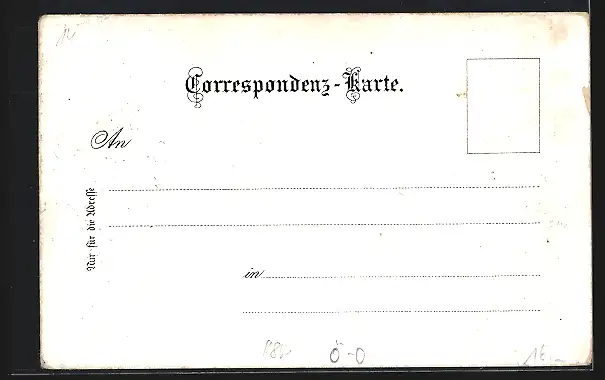 Correspondenz-Karte.
An
Nur für die Adresse
in
Ö-O